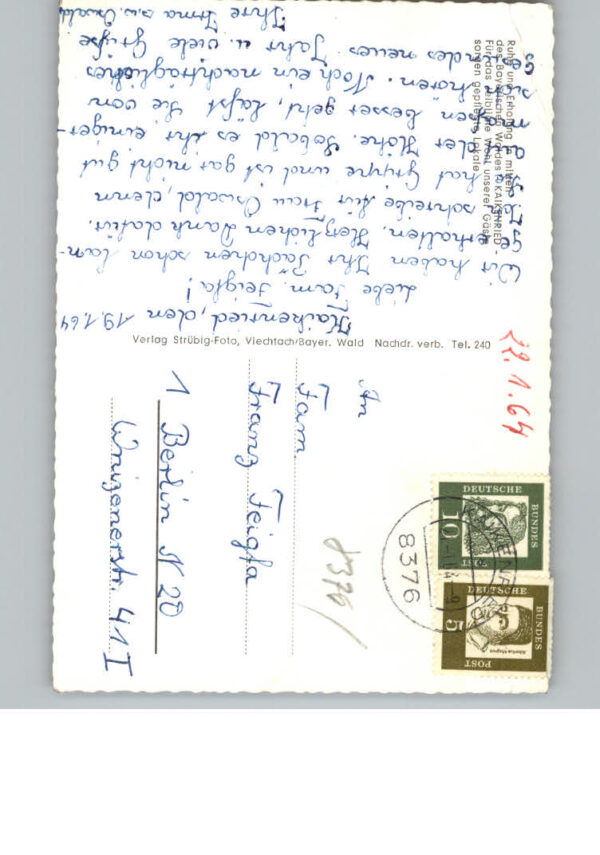 Kaikenried, den 19.1.64
Liebe Fam. Feigfa!
Wir haben Ihr Päckchen schon lan-
ge erhalten. Herzlichen Dank dafür.
Ich schreibe für Frau Oswald, denn
Sie hat Grippe und ist gar nicht gut
auf der Höhe. Sobald es ihr einiger-
maßen besser geht, läßt sie von
sich hören. Noch ein nachträgliches
gesundes neues Jahr u. viele Grüße
Ihre Irma u.
Ruhe und Erholung inmitten
des Bayerischen Waldes in KAIKENRIED
Für das leibliche Wohl unserer Gäste
sorgen gepflegte Lokale
Verlag Strübig-Foto, Viechtach/Bayer. Wald Nachdr. verb. Tel. 240
22.1.64
An
Fam
Franz Feigfa
1 Berlin N 20
41 I
8376
8376
DEUTSCHE
BUNDES
POST
10
DEUTSCHE
BUNDES
POST
5